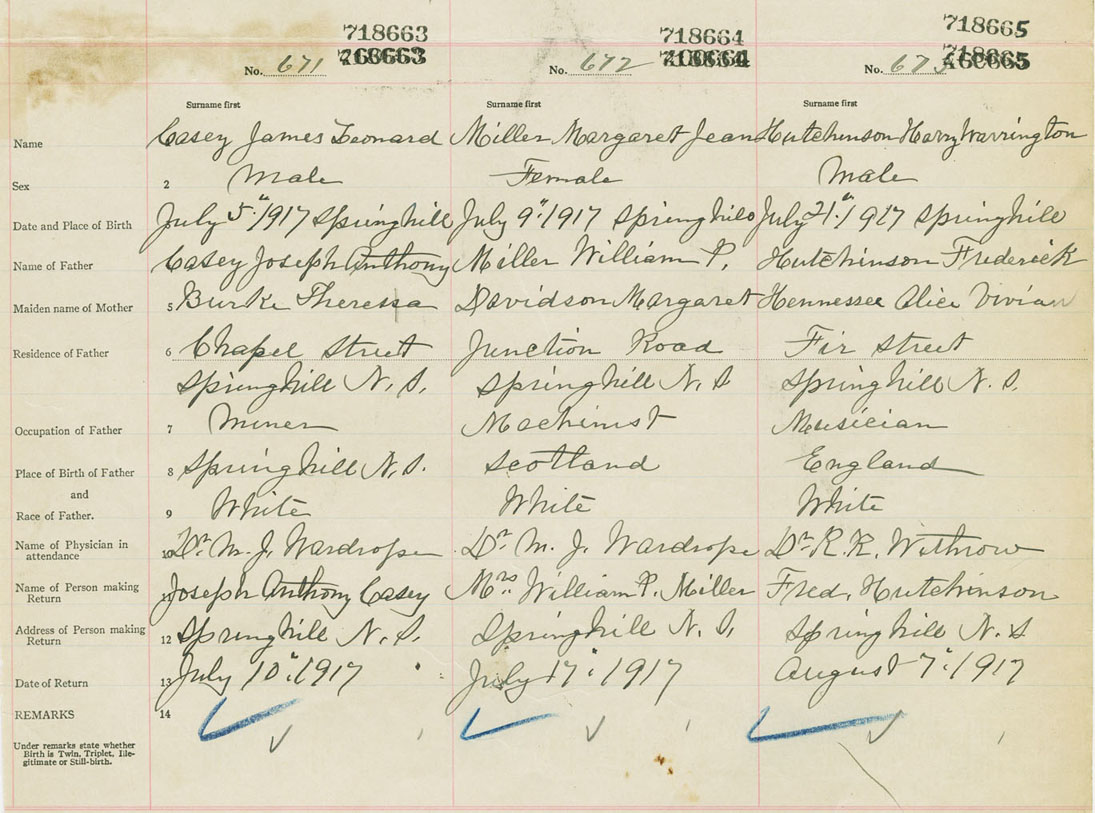 718663 718664 718665
No. 671 No. 672 No. 673
Surname first Surname first Surname first
Name Casey James Leonard Miller Margaret Jean Hutchinson Harry Warrington
Sex 2 Male Female Male
Date and Place of Birth July 5"/1917 Springhill July 9"/1917 Springhill July 21"/1917 Springhill
Name of Father Casey Joseph Anthony Miller William P. Hutchinson Frederick
Maiden name of Mother 5 Burke Theressa Davidson Margaret Hennessee Alice Vivian
Residence of Father 6 Chapel Street Junction Road Fir Street
Springhill N.S. Springhill N.S Springhill N.S.
Occupation of Father 7 Miner Machinist Musician
Place of Birth of Father 8 Springhill N.S. Scotland England
and
Race of Father. 9 White White White
Name of Physician in attendance 10 Dr. M. J. Wardrope Dr. M. J. Wardrope Dr. R. K. Withrow
Name of Person making Return Joseph Anthony Casey Mrs. William P. Miller Fred. Hutchinson
Address of Person making Return 12 Springhill N.S. Springhill N.S. Springhill N.S
Date of Return 13 July 10"/1917 July 17"/1917 August 7"/1917
REMARKS 14
Under remarks state whether
Birth is Twin, Triplet, Ille-
gitimate or Still-birth.